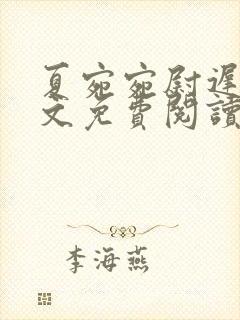 夏宛宛尉遲
文免費閱讀
李海燕